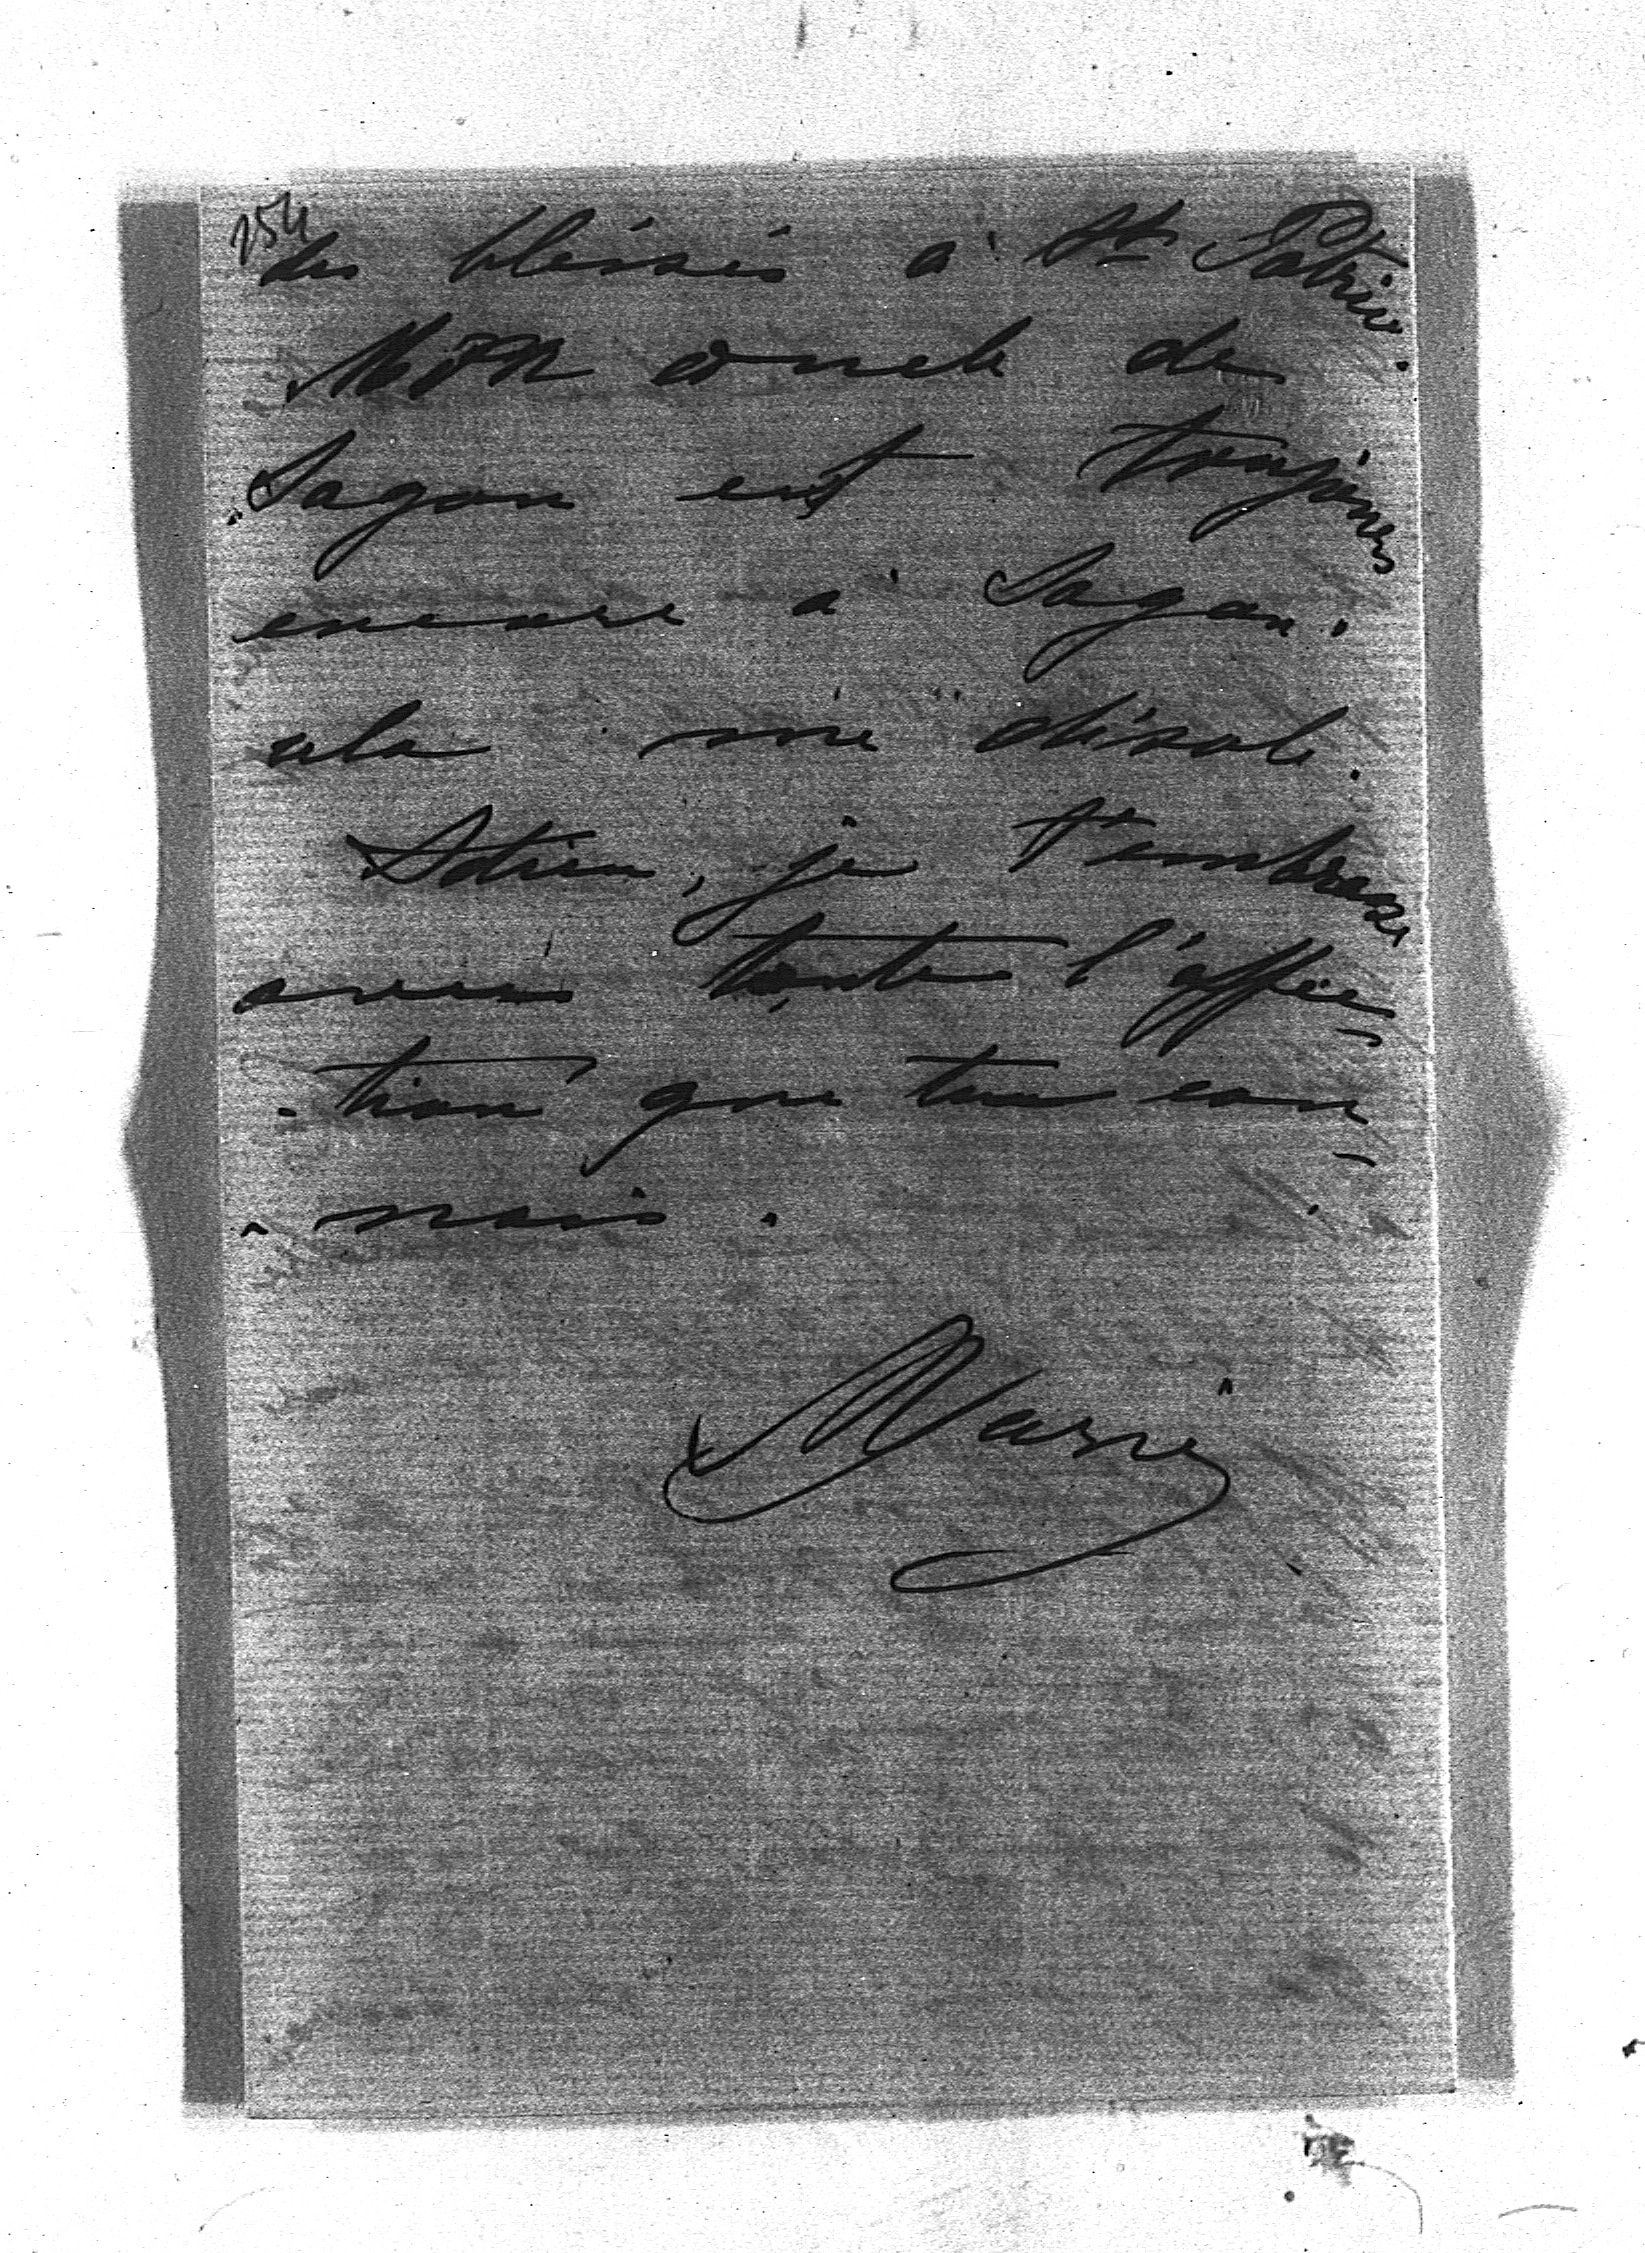 254
des blessés à St Patrice.
Mon oncle de
Sagan est toujours
encore à Sagan.
cela me désole.
Adieu, je t'embrasse
avec toute l'affec-
-tion que tu con-
-nais.
Marie